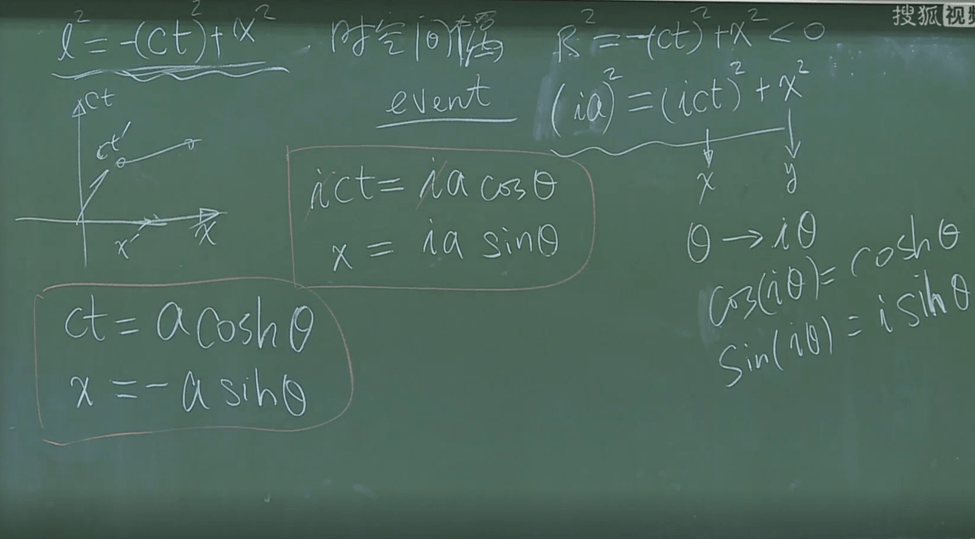 l² = -(ct)² + x² . 时空间隔 R² = -(ct)² + x² < 0
event (ia)² = (ict)² + x²
x y
ct
ct'
x' x
ict = ia cosθ
x = ia sinθ
θ → iθ
cos(iθ) = coshθ
sin(iθ) = i sihθ
ct = a coshθ
x = - a sihθ
搜狐视频